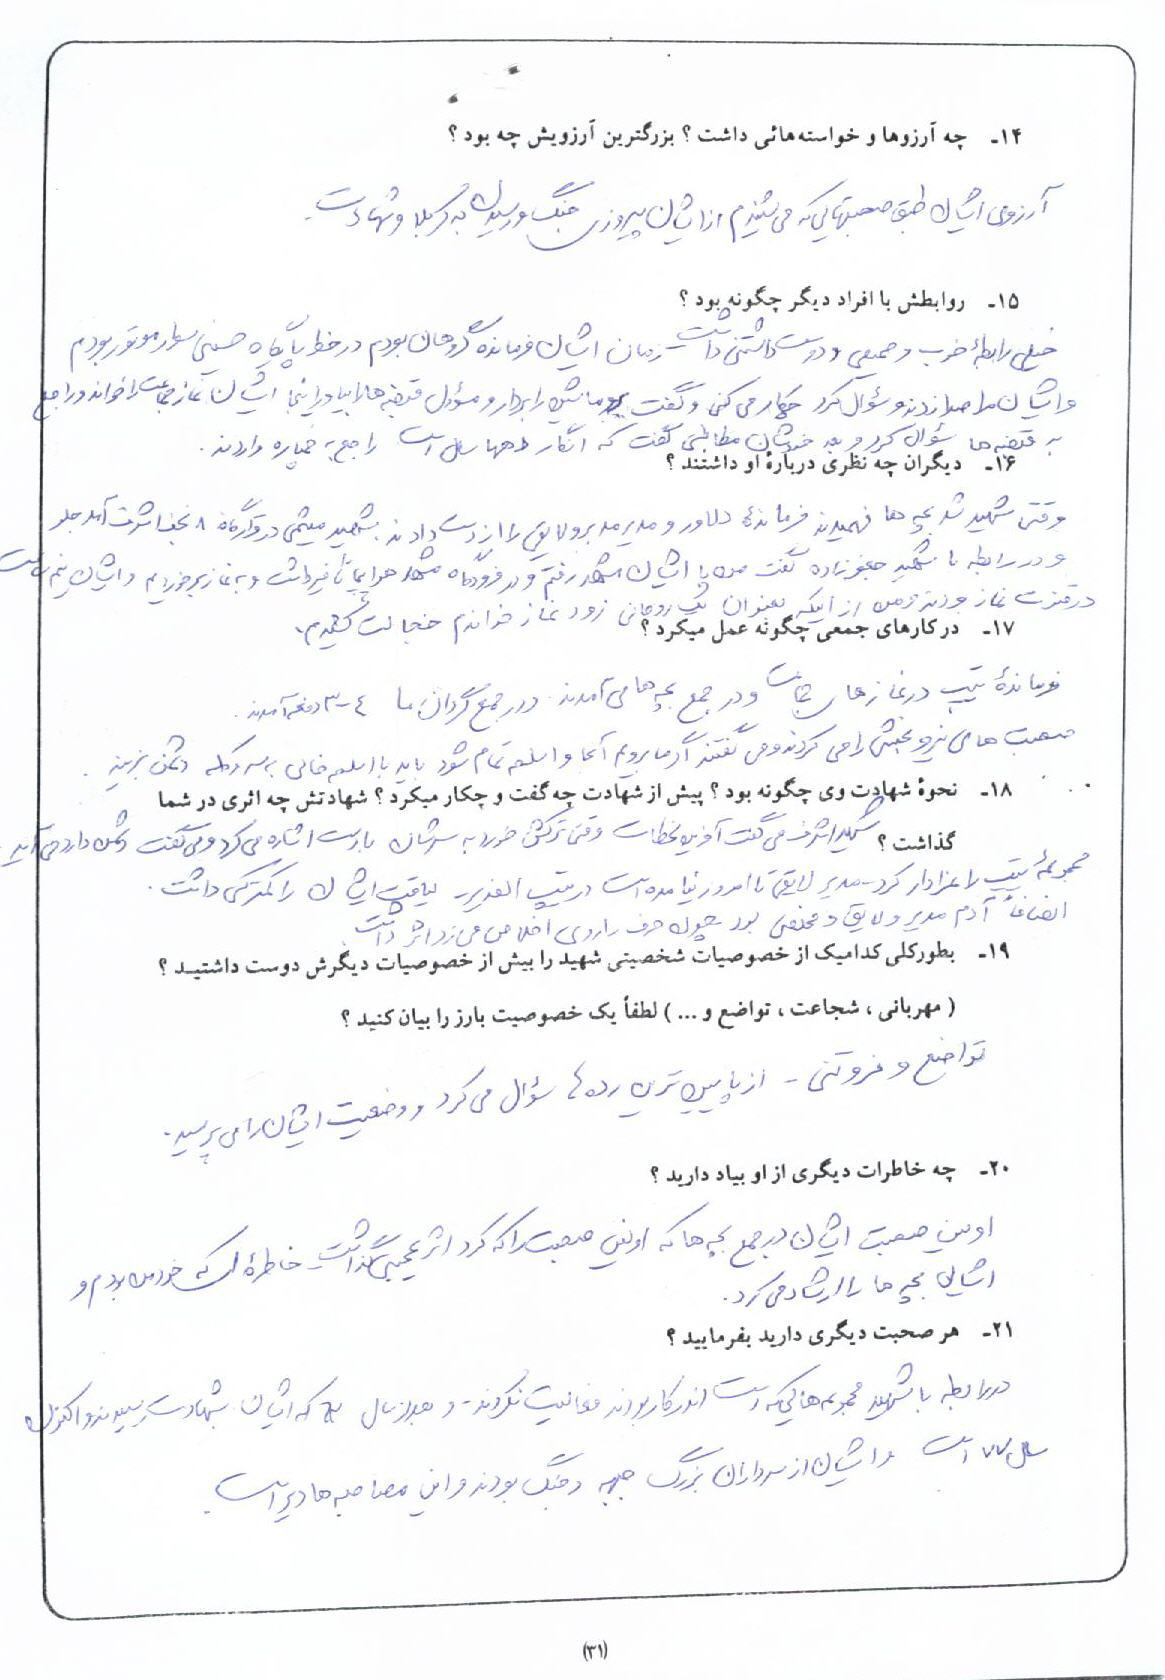 ۱۴ـ چه آرزوها و خواسته‌هائی داشت ؟ بزرگترین آرزویش چه بود ؟
آرزوی ایشان طبق صحبتهایی که می‌شنیدم از ایشان پیروزی جنگ و رسیدن به کربلا و شهادت.
۱۵ـ روابطش با افراد دیگر چگونه بود ؟
خیلی رابطهٔ خوب و صمیمی و دوست داشتنی داشت زمان ایشان فرمانده گروهان بودم در خط پاپگاه حسینی سوار موتور بودم
و ایشان مرا صدا زدند و سؤال کرد چکار می‌کنی و گفت را بردار و مسؤل قبضه‌ها را بیاور اینجا ایشان نماز جماعت را خواند و راجع
به قبضه‌ها سؤال کرد و بعد خودشان مطالبی گفت که انگار دهها سال است راجع به خمپاره واردند.
۱۶ـ دیگران چه نظری دربارهٔ او داشتند ؟
وقتی شهید شد بچه‌ها فهمیدند فرماندهٔ دلاور و مدیر مدبر و لایقی را از دست دادند شهید میثمی در قرارگاه ۸ نجف اشرف آمد جلو
و در رابطه با شهید جعفرزاده گفت من با ایشان مشهد رفتم و در فرودگاه مشهد هواپیما تأخیر داشت و به نماز برخوردیم و ایشان
در قنوت نماز بودند و من از اینکه بعنوان یک روحانی زود نماز خواندم خجالت کشیدم.
۱۷ـ در کارهای جمعی چگونه عمل میکرد ؟
فرماندهٔ تیپ در نمازهای جماعت و در جمع بچه‌ها می‌آمدند. در جمع گردان ما ٤-۳ دفعه آمدند.
صحبت‌های نیروبخشی را می‌کردند و می‌گفتند اگر ما برویم آنجا و اسلحه تمام شود باید با اسلحه خالی به سر و کله دشمن بزنید.
۱۸ـ نحوهٔ شهادت وی چگونه بود ؟ پیش از شهادت چه گفت و چکار میکرد ؟ شهادتش چه اثری در شما
گذاشت ؟ شهید اشرف می‌گفت آخرین لحظات وقتی ترکش خورد به سرشان با دست اشاره می‌کرد و می‌گفت دشمن دارد می‌آید.
مجموعهٔ تیپ را عزادار کرد - مدیر لایقی تا امروز نیامده است در تیپ الغدیر - لیاقت ایشان را کمتر کسی داشت.
انصافاً آدم مدیر و لایق و مخلصی بود چون حرف را روی اخلاص می‌زد اثر داشت.
۱۹ـ بطورکلی کدامیک از خصوصیات شخصیتی شهید را بیش از خصوصیات دیگرش دوست داشتید ؟
( مهربانی ، شجاعت ، تواضع و ... ) لطفاً یک خصوصیت بارز را بیان کنید ؟
تواضع و فروتنی - از پایین‌ترین رده‌ها سؤال می‌کرد و وضعیت ایشان را می‌پرسید.
۲۰ـ چه خاطرات دیگری از او بیاد دارید ؟
اولین صحبت ایشان در جمع بچه‌ها که اولین صحبت را که کرد اثر عجیبی گذاشت خاطره‌ای که خود من بودم و
ایشان بچه‌ها را ارشاد می‌کرد.
۲۱ـ هر صحبت دیگری دارید بفرمایید ؟
در رابطه با شهید مجموعه‌هایی که دست اندرکار بودند فعالیت نکردند - و بعد از سال که ایشان بشهادت رسیدند و اکنون
سال ۷۷ است و ایشان از سرداران بزرگ جبهه و جنگ بودند و این مصاحبه‌ها دیر است.
(۳۱)